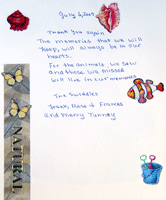 July 6, 2009
Thank you again
The memories that we will
keep, will always be in our
hearts.
For the animals, we saw
and those we missed
will live in our memories
The Swiddles
Frank, Rose & Frances
and Penny Tunney
NATURAL